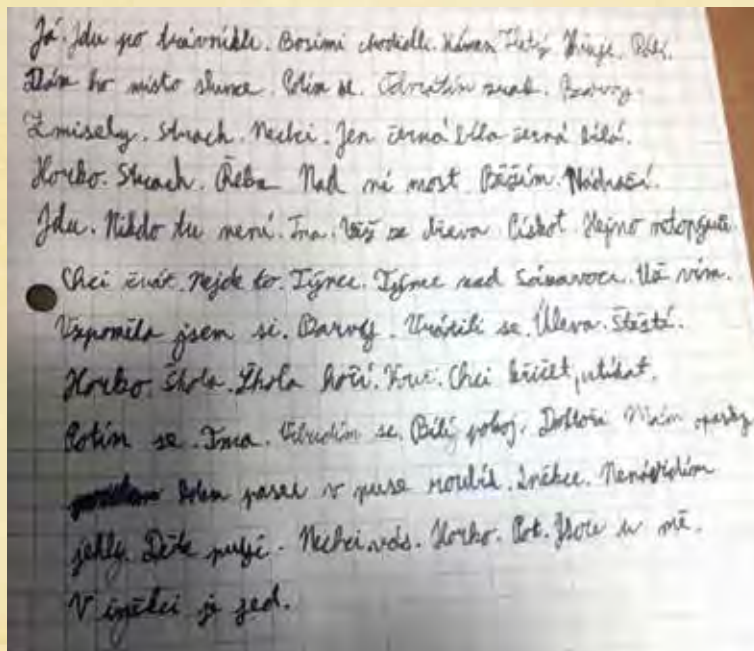 Já. Jdu po trávníkle. Bosími chodidli. Kámen. Zlatý. Hřuje. Pálí.
Dám ho místo slunce. Potím se. Odvrátím zrak. Barvy.
Zmisely. Strach. Nechci. Jen černá bíla černá bílá.
Horko. Strach. Řeka. Nad ní most. Běžím. Nádraží.
Jdu. Nikdo tu není. Tma. Věž ze dřeva. Pískot. Hejno netopýrů.
Chci řvát. Nejde to. Týnec. Týnec nad Sázavou. Už vím.
Vzpoměla jsem si. Barvy. Vrátili se. Úleva. Štěstí.
Horko. Škola. Škola hoří. Kruť. Chci křičet, utíkat.
Potím se. Tma. Vzbudím se. Bílý pokoj. Doktoři. Mám opasky
kolem pasu v puse roubík. Inekce. Nenávidím
jehly. Děte pulyč. Nechci vás. Horko. Pot. Jsou u mě.
V injekci je jed.